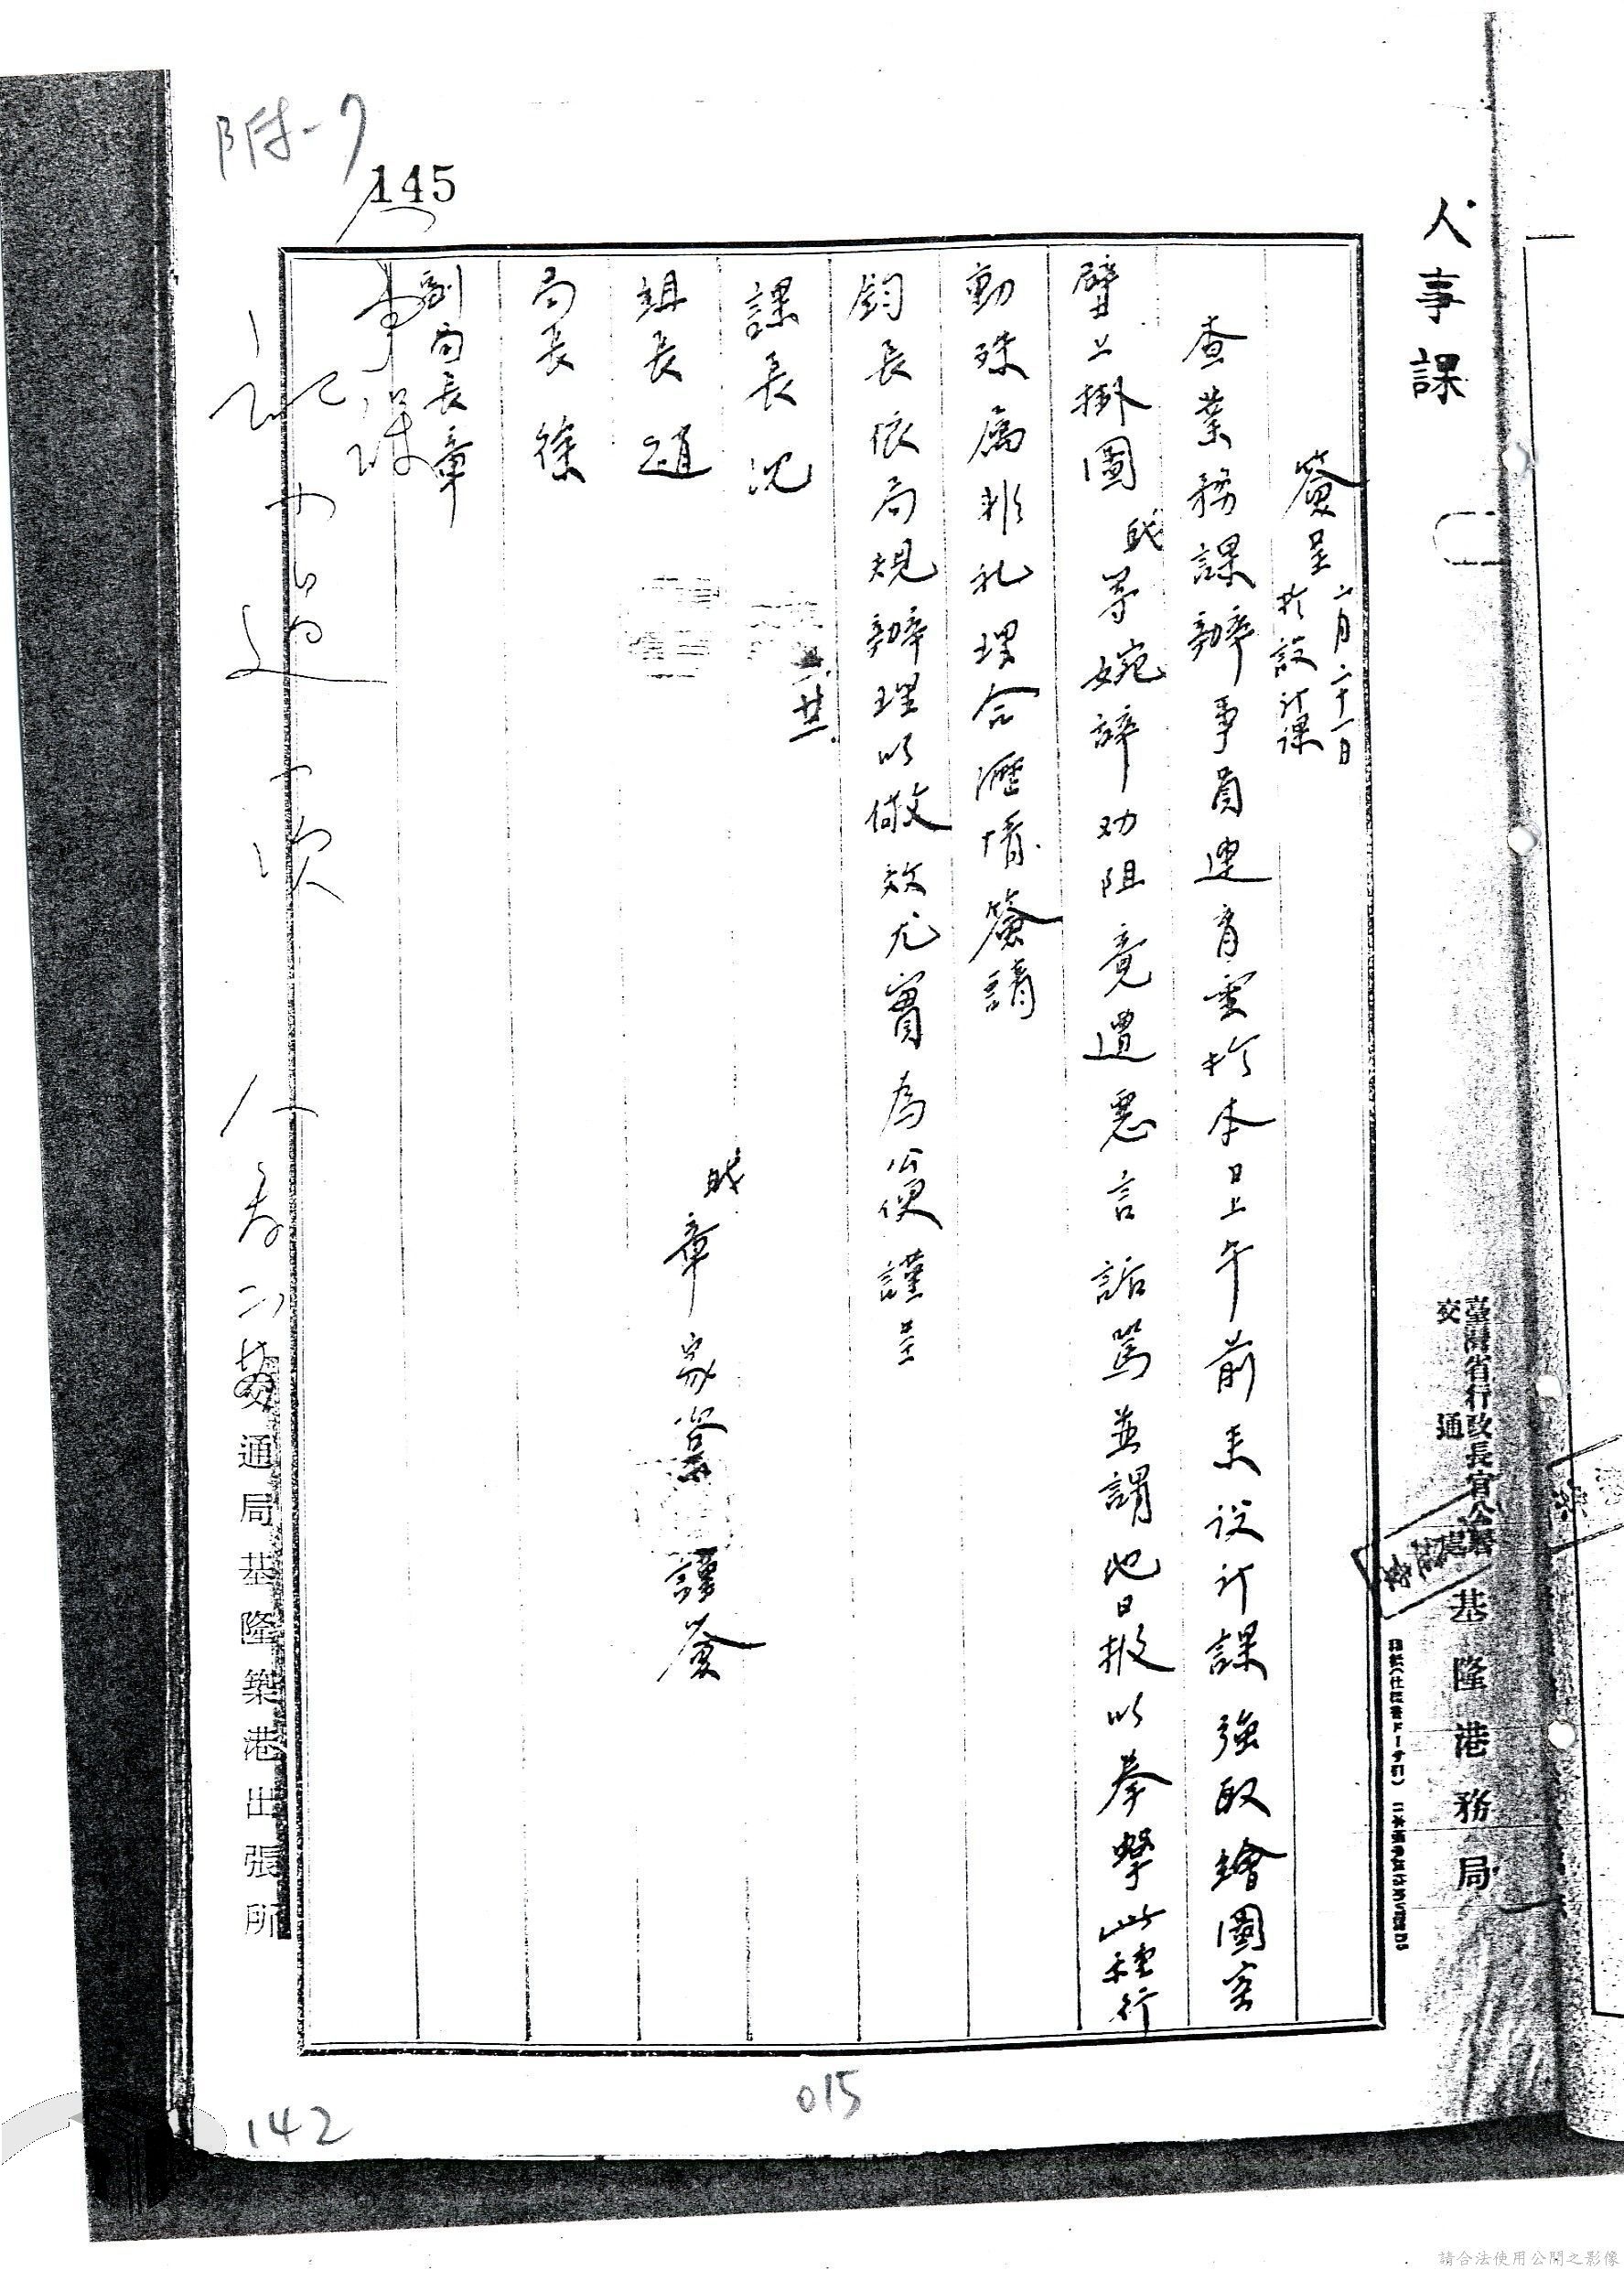 附-7
145
人事課
簽呈 六月二十一日
於設計課
查業務課辦事員連育雲於本日上午前来设计課強取繪圖室
壁上掛圖職等婉辞劝阻竟遭惡言詬罵並謂他日报以拳擊此種行
動殊属非礼理合瀝情簽請
鈞長依局規辦理以儆效尤實為公便謹呈
課長 沈
組長 趙
局長 徐
副局長 章
職 章家 謹簽
人事課
記過一次
通局基隆築港出張所
臺灣省行政長官公署
交通處
基隆港務局
015
142
請合法使用公開之影像